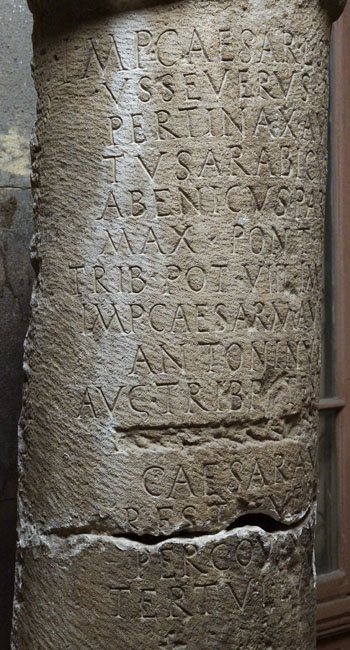 IMPCAESAR
VSSEVERVS
PERTINAXAV
TVSARABIC
ABENICVSPAR
MAX · PONT
TRIB · POT VII IM
IMPCAESARMAV
ANTONINV
AVGTRIB
CAESARA
REST
PERCOV
TERTVL